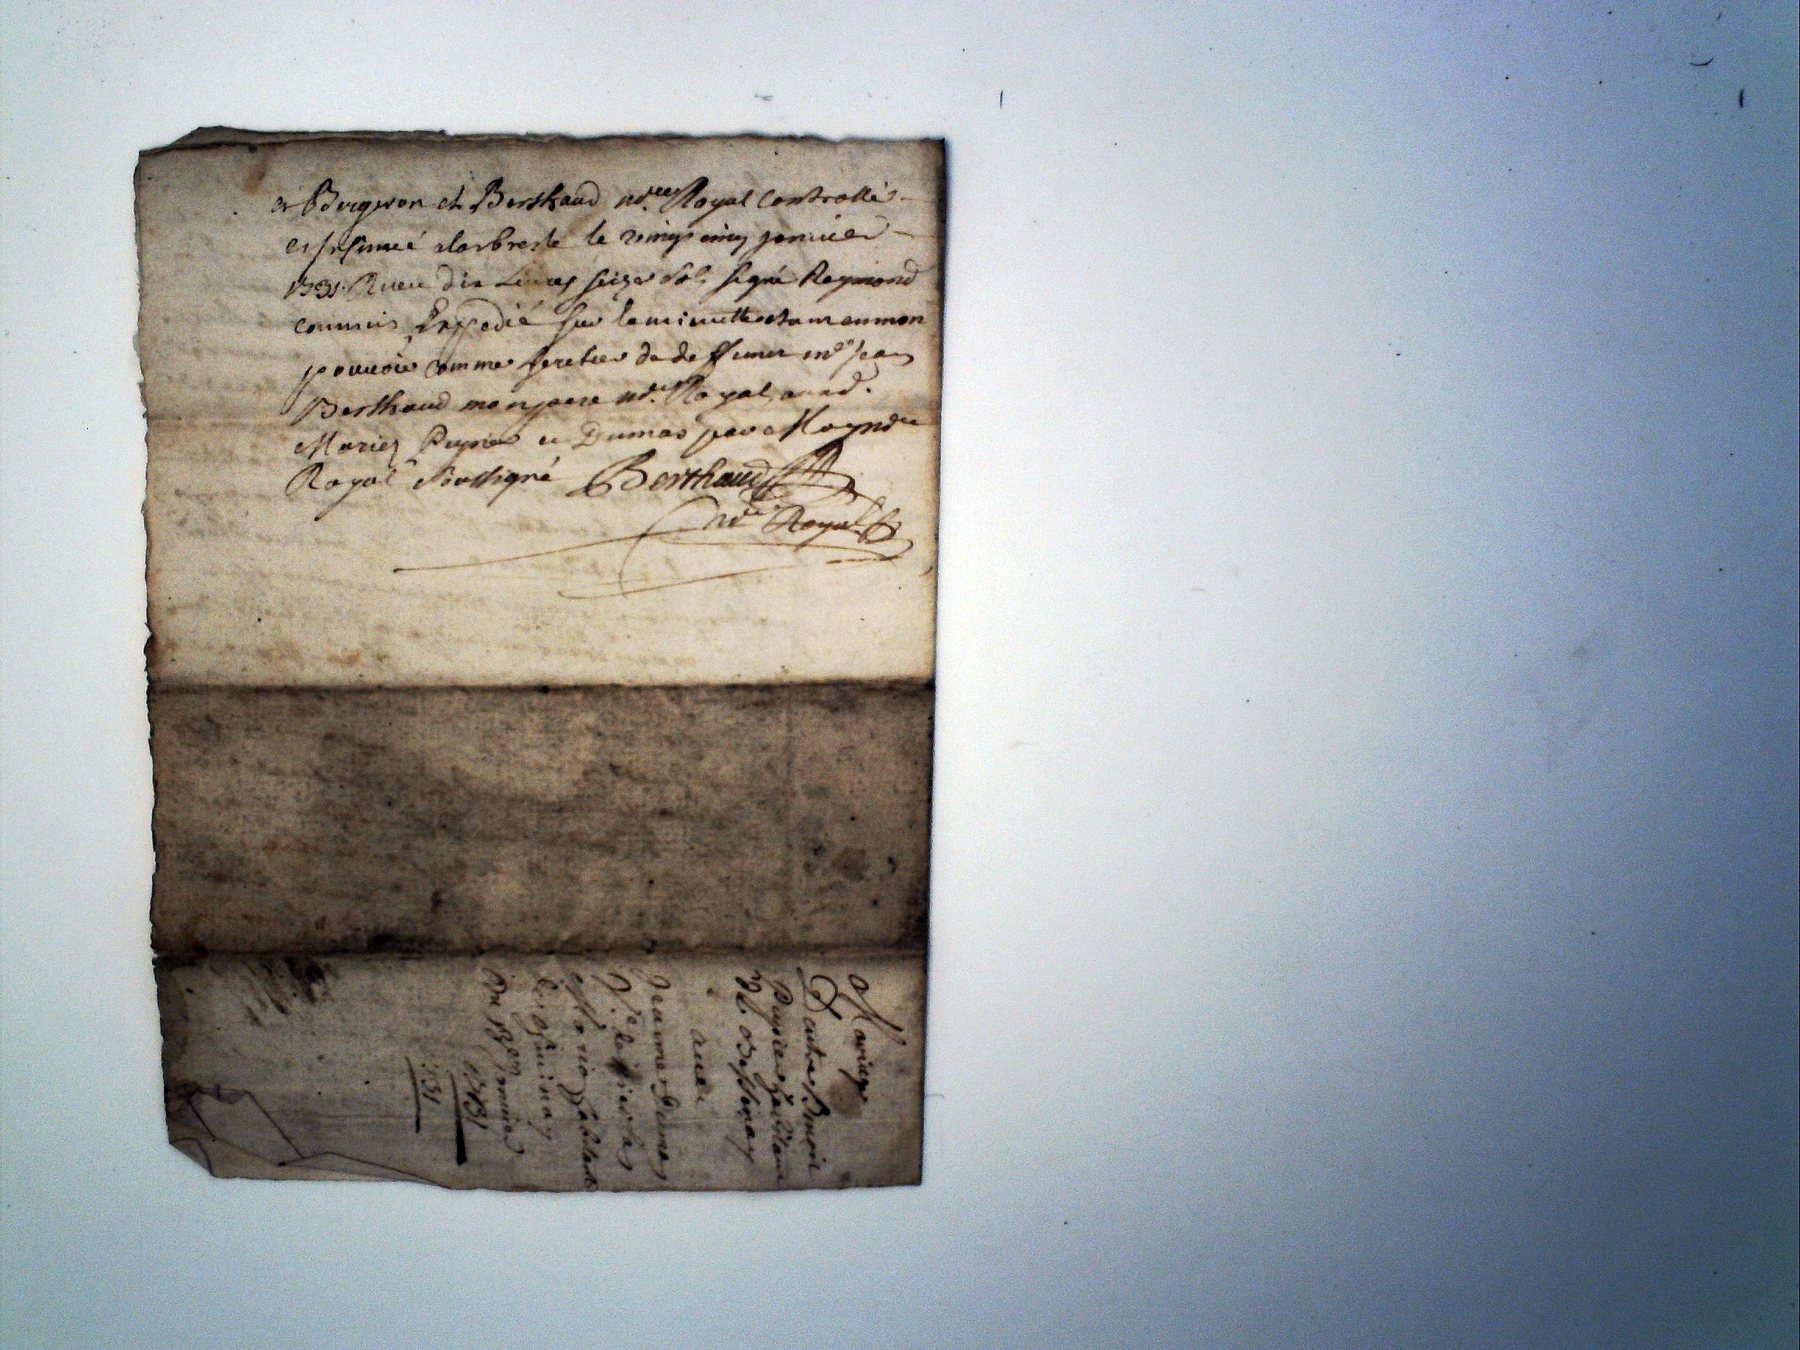 et Bergeron et Berthaud nore Royal Controllé
et Insinué alarbresle le vingt cinq janvier
1731 Receu dix Livres seize sols signé Reymond
commis Expedié sur la minutte estant enmon
pouvoir comme heretier de deffunct me Jean
Berthaud mon pere nore Royal aud.
Mariez Peyrier et Dumas par moy nore
Royal Soussigné Berthaud
nore Royal
Mariage
Dentre Benoit
Peyrier habitant
avec
Jeanne Dumas
habitante
Du janvier
1731
1731